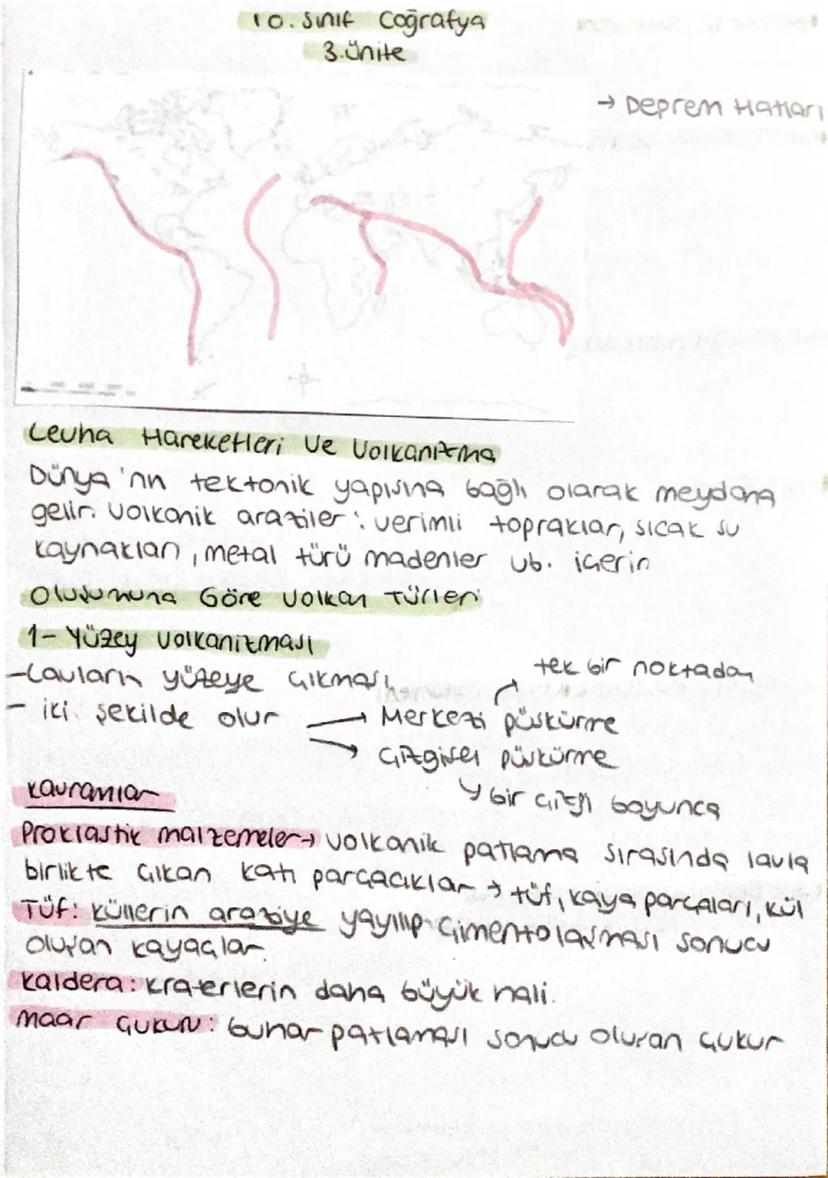 10. Sınıf Coğrafya
3. Ünite
→ Deprem Hatları
Levha Hareketleri Ve Volkanizma
Dünya'nın tektonik yapısına bağlı olarak meydana
gelir. Volkanik araziler: verimli topraklar, sıcak su
kaynakları, metal türü madenler vb. içerir.
Oluşumuna Göre Volkan Türleri
1- Yüzey Volkanizması
-Lavların yüzeye çıkması
- iki şekilde olur → Merkezi püskürme → tek bir noktadan
→ Çizgisel püskürme
↳ bir çizgi boyunca
Kavramlar
Proklastik malzemeler → Volkanik patlama sırasında lavla
birlikte çıkan katı parçacıklar → tüf, kaya parçaları, kül
Tüf: küllerin araziye yayılıp çimentolaşması sonucu
oluşan kayaçlar.
Kaldera: kraterlerin daha büyük hali.
Maar Çukuru: buhar patlaması sonucu oluşan çukur